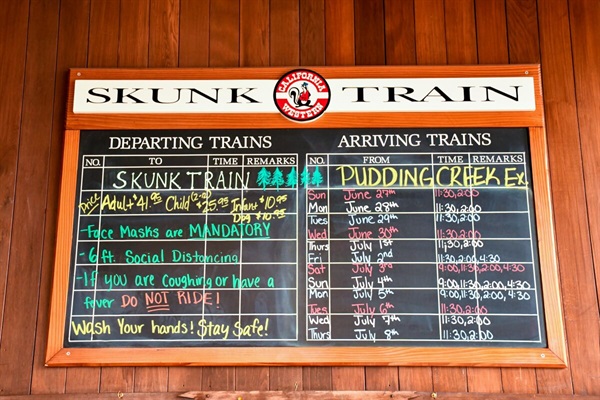 SKUNK TRAIN
CALIFORNIA WESTERN
DEPARTING TRAINS
NO. TO TIME REMARKS
SKUNK TRAIN
Price Adult $41.95 Child (2-12) $25.95 Infant $10.95
Dog $10.95
-Face Masks are MANDATORY
-6 ft. Social Distancing
-If you are Coughing or have a
fever DO NOT RIDE!
Wash Your hands! Stay Safe!
ARRIVING TRAINS
NO. FROM TIME REMARKS
PUDDING CREEK Ex.
Sun June 27th 11:30, 2:00
Mon June 28th 11:30, 2:00
Tues June 29th 11:30, 2:00
Wed June 30th 11:30, 2:00
Thurs July 1st 11:30, 2:00
Fri July 2nd 11:30, 2:00
Sat July 3rd 9:00, 11:30, 2:00, 4:30
Sun July 4th 9:00, 11:30, 2:00, 4:30
Mon July 5th 9:00, 11:30, 2:00, 4:30
Tues July 6th 11:30, 2:00
Wed July 7th 11:30, 2:00
Thurs July 8th 11:30, 2:00